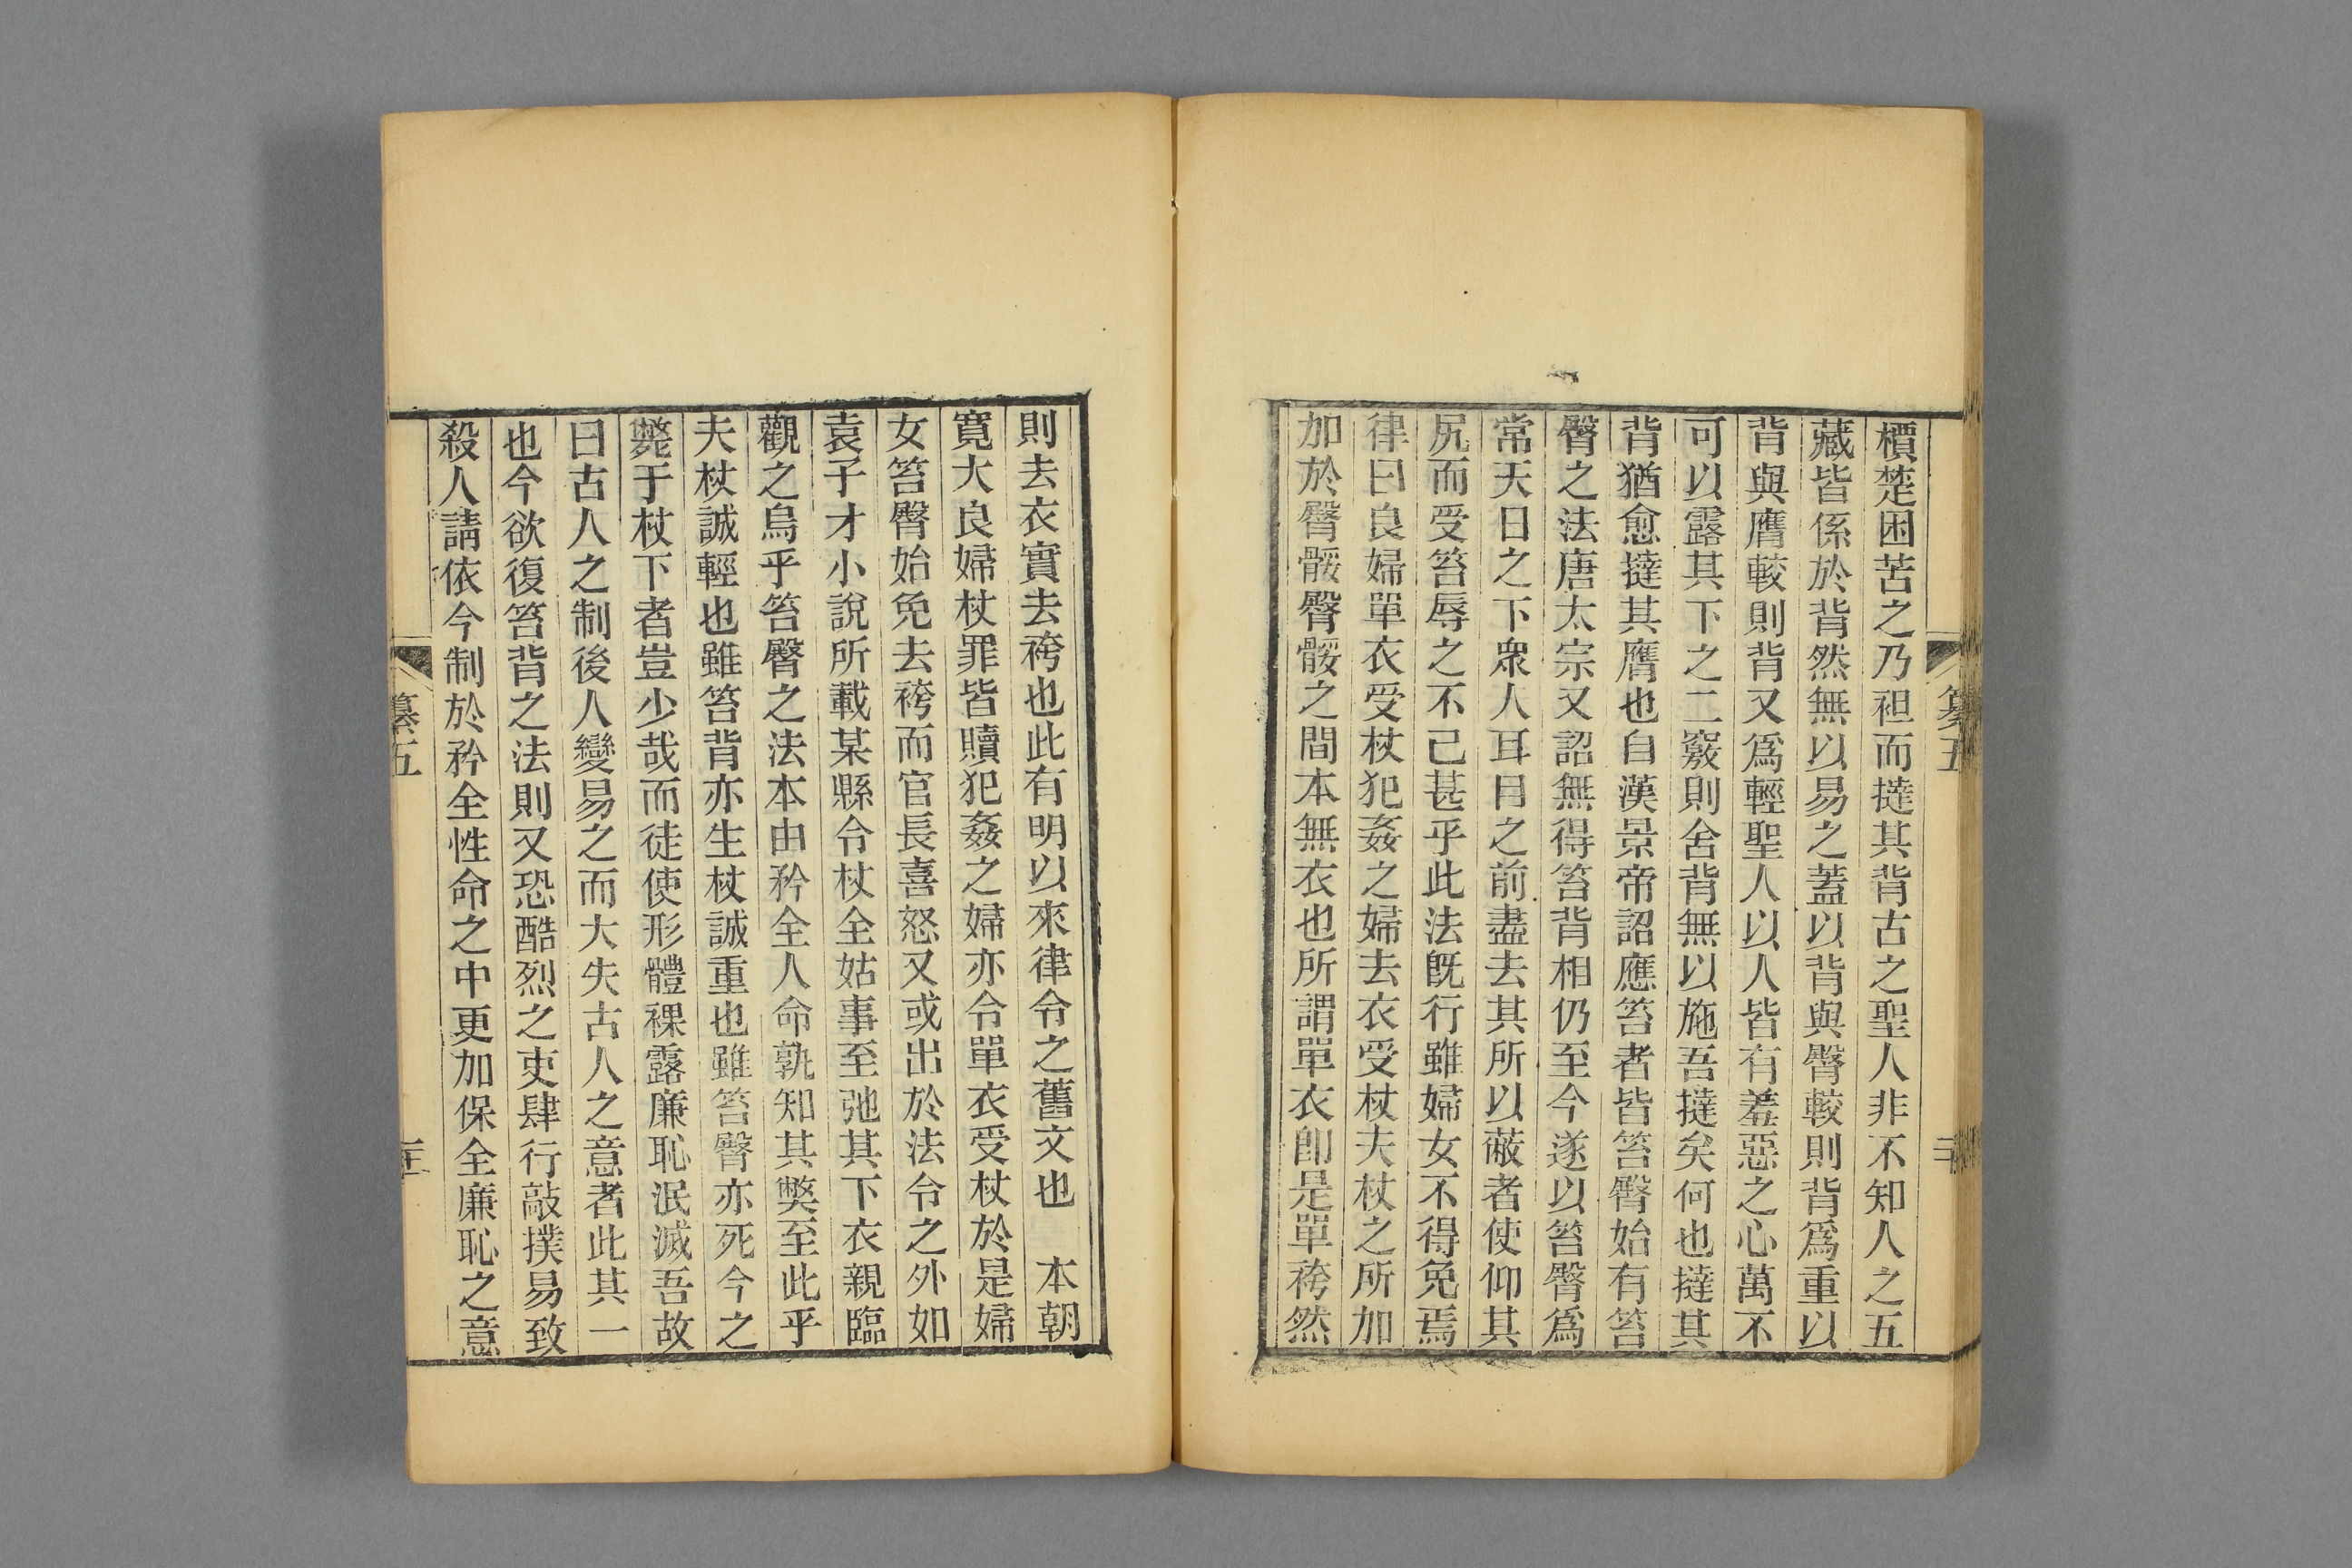 檟楚困苦之乃袒而撻其背古之聖人非不知人之五
藏皆係於背然無以易之蓋以背與臀較則背爲重以
背與膺較則背又爲輕聖人以人皆有羞惡之心萬不
可以露其下之二竅則舍背無以施吾撻矣何也撻其
背猶愈撻其膺也自漢景帝詔應笞者皆笞臀始有笞
臀之法唐太宗又詔無得笞背相仍至今遂以笞臀爲
常天日之下衆人耳目之前盡去其所以蔽者使仰其
尻而受笞辱之不已甚乎此法既行雖婦女不得免焉
律曰良婦單衣受杖犯姦之婦去衣受杖夫杖之所加
加於臀骽臀骽之間本無衣也所謂單衣卽是單袴然
纂五
則去衣實去袴也此有明以來律令之舊文也　本朝
寬大良婦杖罪皆贖犯姦之婦亦令單衣受杖於是婦
女笞臀始免去袴而官長喜怒又或出於法令之外如
袁子才小說所載某縣令杖全姑事至弛其下衣親臨
觀之烏乎笞臀之法本由矜全人命孰知其獘至此乎
夫杖誠輕也雖笞背亦生杖誠重也雖笞臀亦死今之
斃于杖下者豈少哉而徒使形體裸露廉恥泯滅吾故
曰古人之制後人變易之而大失古人之意者此其一
也今欲復笞背之法則又恐酷烈之吏肆行敲撲易致
殺人請依今制於矜全性命之中更加保全廉恥之意
纂五